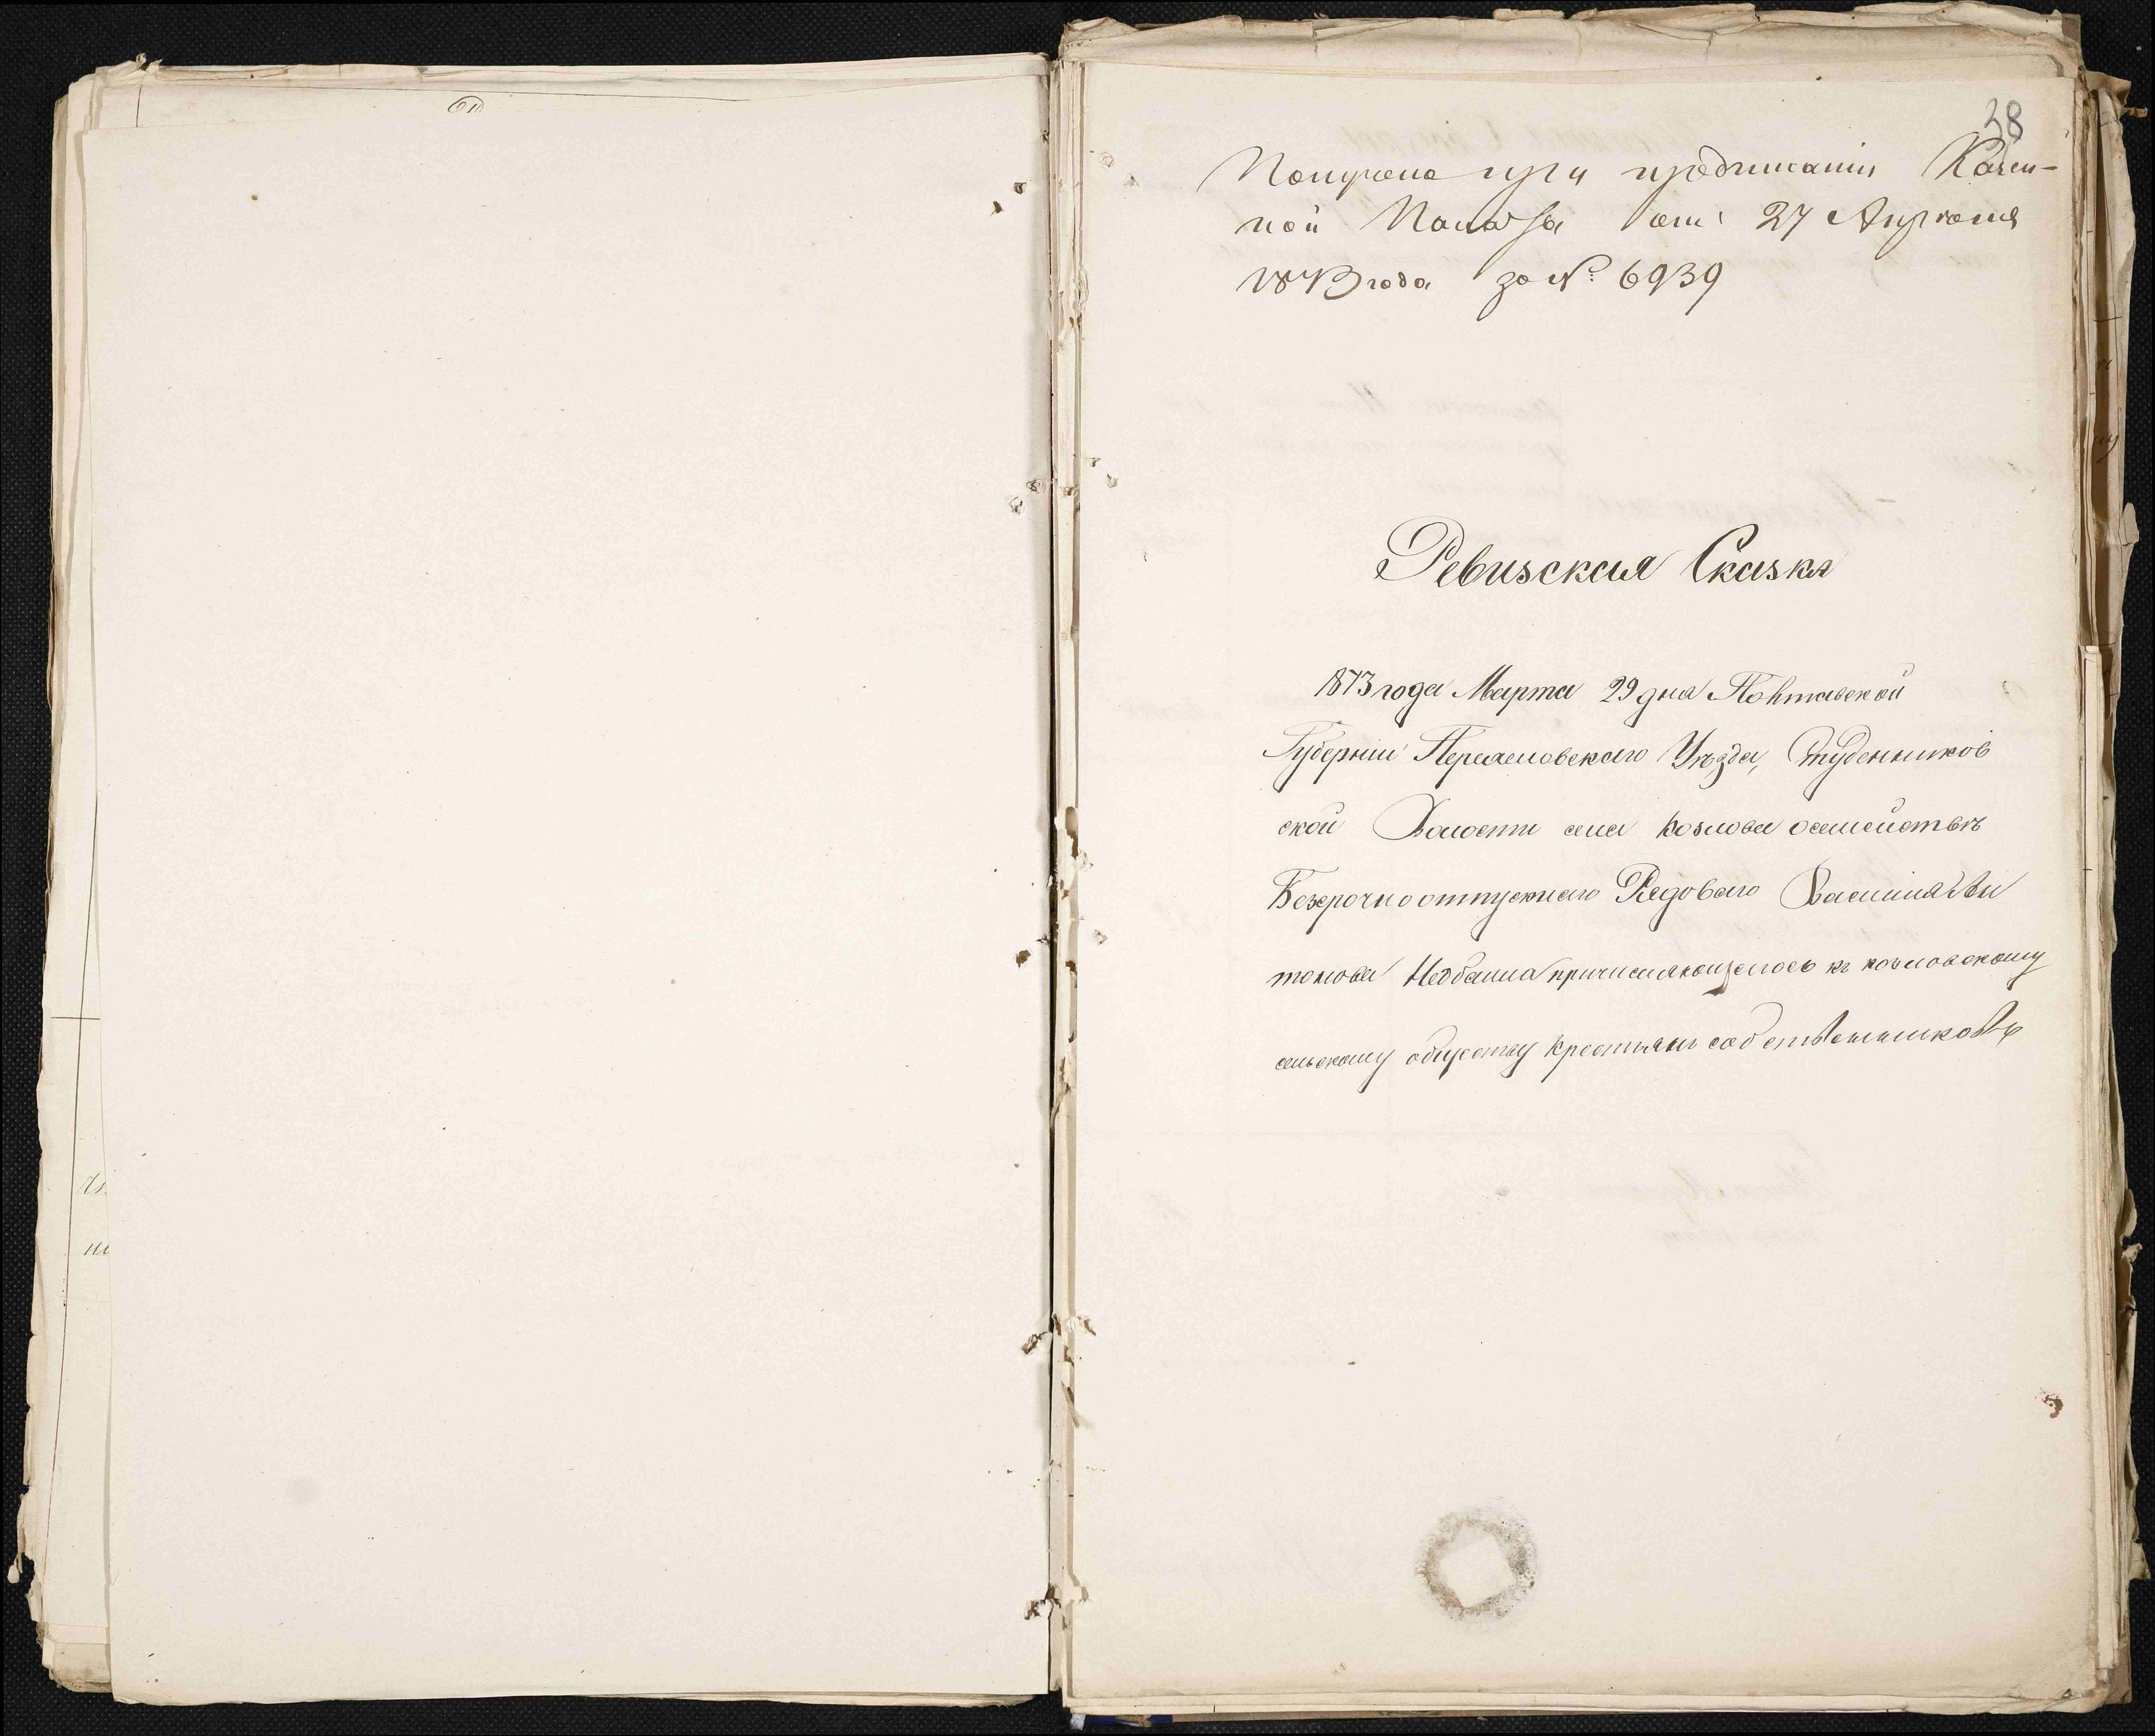 38
Получена при предписаніи Казен-
ной Палаты отъ 27 Апреля
1873 года за № 6939
Ревизская Сказка
1873 года Марта 29 дня Полтавской
Губерніи Переяславскаго Уѣзда, Студеников
ской Волости села Козлова о семействѣ
Безсрочноотпускнаго Рядоваго Василія Ан
тонова Недбайла причисляющегось къ козловскому
сельскому обществу крестьянъ собственниковъ